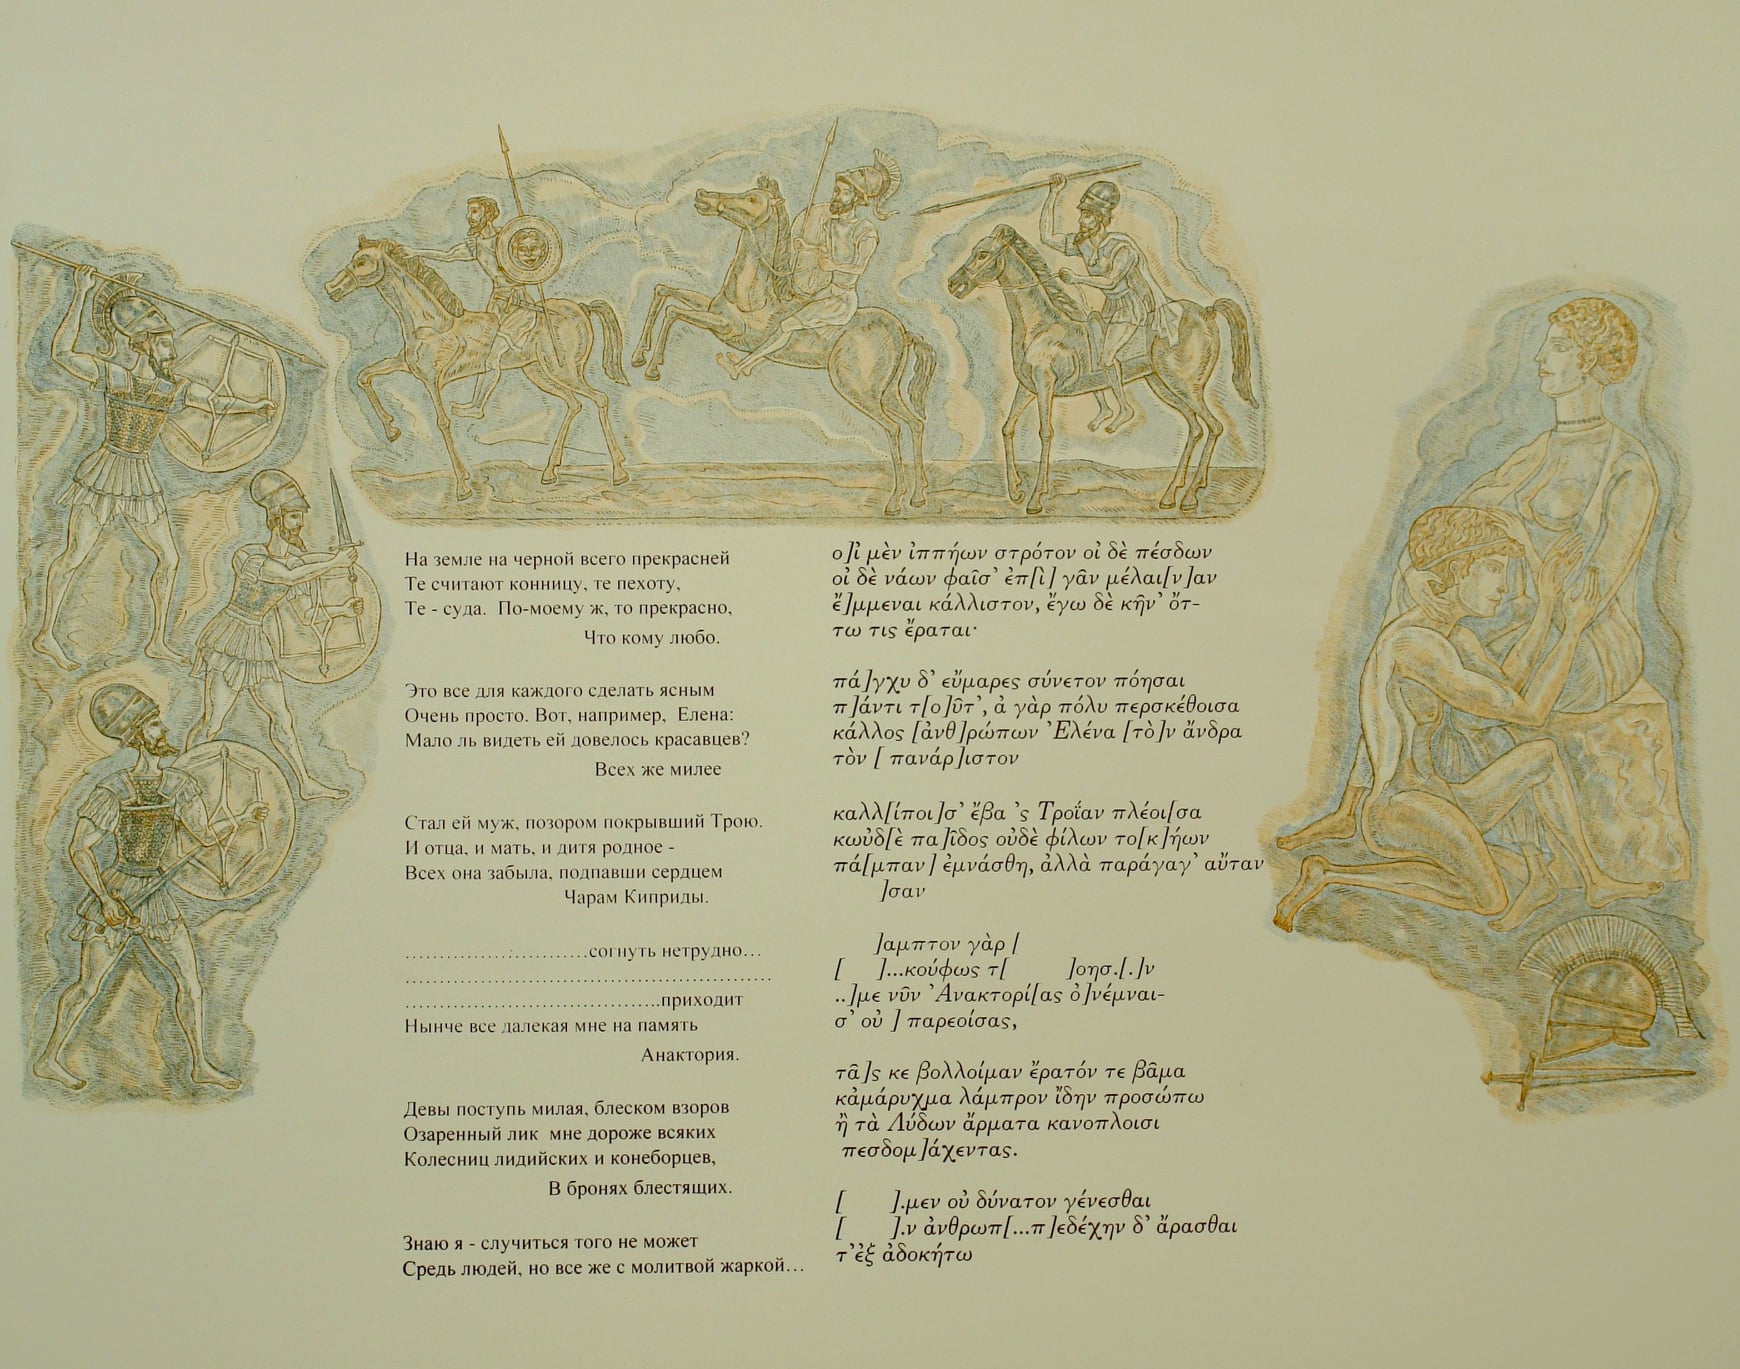 На земле на черной всего прекрасней
Те считают конницу, те пехоту,
Те - суда. По-моему ж, то прекрасно,
Что кому любо.
Это все для каждого сделать ясным
Очень просто. Вот, например, Елена:
Мало ль видеть ей довелось красавцев?
Всех же милее
Стал ей муж, позором покрывший Трою.
И отца, и мать, и дитя родное -
Всех она забыла, подпавши сердцем
Чарам Киприды.
……………………………согнуть нетрудно…
…………………………………………………………
………………………………………приходит
Нынче все далекая мне на память
Анактория.
Девы поступь милая, блеском взоров
Озаренный лик мне дороже всяких
Колесниц лидийских и конеборцев,
В бронях блестящих.
Знаю я - случиться того не может
Средь людей, но все же с молитвой жаркой…
ο]ἰ μὲν ἰππήων στρότον οἰ δὲ πέσδων
οἰ δὲ νάων φαῖσ’ ἐπ[ὶ] γᾶν μέλαι[ν]αν
ἔ]μμεναι κάλλιστον, ἔγω δὲ κῆν’ ὄτ-
τω τις ἔραται·
πά]γχυ δ’ εὔμαρες σύνετον πόησαι
π]άντι τ[ο]ῦτ’, ἀ γὰρ πόλυ περσκέθοισα
κάλλος [ἀνθ]ρώπων Ἐλένα [τὸ]ν ἄνδρα
τὸν [ πανάρ]ιστον
καλλ[ίποι]σ’ ἔβα ’ς Τροΐαν πλέοι[σα
κωὐδ[ὲ πα]ῖδος οὐδὲ φίλων το[κ]ήων
πά[μπαν] ἐμνάσθη, ἀλλὰ παράγαγ’ αὔταν
]σαν
]αμπτον γὰρ [
[ ]...κούφως τ[ ]οησ.[.]ν
..]με νῦν Ἀνακτορί[ας ὀ]νέμναι-
σ’ οὐ ] παρεοίσας,
τᾶ]ς κε βολλοίμαν ἔρατόν τε βᾶμα
κἀμάρυχμα λάμπρον ἴδην προσώπω
ἢ τὰ Λύδων ἄρματα κανοπλοισι
πεσδομ]άχεντας.
[ ].μεν οὐ δύνατον γένεσθαι
[ ].ν ἀνθρωπ[...π]εδέχην δ’ ἄρασθαι
τ’ἐξ ἀδοκήτω